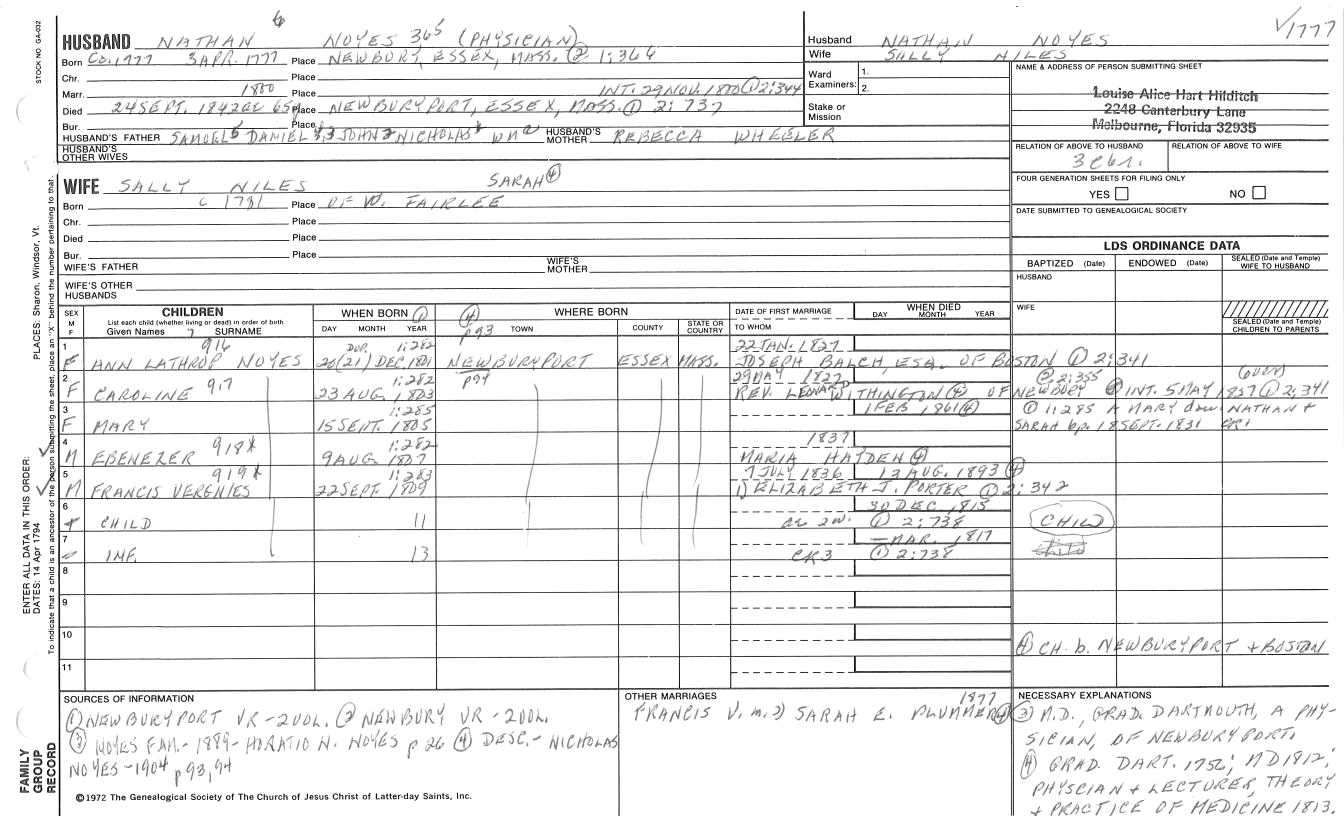 6
√1777
STOCK NO GA-032
HUSBAND NATHAN NOYES 365 (PHYSICIAN)
Born Ca.1777 3 APR. 1777 Place NEWBURY, ESSEX, MASS. ② 1:366
Chr. Place
Marr. 1800 Place INT. 29 NOV. 1800 ① 2:344
Died 24 SEPT. 1842 ae 65y Place NEWBURYPORT, ESSEX, MASS. ① 2:737
Bur. Place
HUSBAND'S FATHER SAMUEL5 DANIEL JOHN NICHOLAS HUSBAND'S MOTHER REBECCA WHEELER
HUSBAND'S OTHER WIVES
Husband NATHAN NOYES
Wife SALLY NILES
Ward Examiners: 1.
2.
Stake or Mission
NAME & ADDRESS OF PERSON SUBMITTING SHEET
Louise Alice Hart Hilditch
2248 Canterbury Lane
Melbourne, Florida 32935
RELATION OF ABOVE TO HUSBAND RELATION OF ABOVE TO WIFE
FOUR GENERATION SHEETS FOR FILING ONLY
YES NO
DATE SUBMITTED TO GENEALOGICAL SOCIETY
WIFE SALLY NILES SARAH ④
Born c 1781 Place OF W. FAIRLEE
Chr. Place
Died Place
Bur. Place
WIFE'S FATHER WIFE'S MOTHER
WIFE'S OTHER HUSBANDS
LDS ORDINANCE DATA
BAPTIZED (Date) ENDOWED (Date) SEALED (Date and Temple) WIFE TO HUSBAND
HUSBAND
WIFE
SEALED (Date and Temple) CHILDREN TO PARENTS
SEX M F
CHILDREN
List each child (whether living or dead) in order of birth
Given Names 7 SURNAME
WHEN BORN ①
DAY MONTH YEAR
④ p93
WHERE BORN
TOWN COUNTY STATE OR COUNTRY
DATE OF FIRST MARRIAGE
TO WHOM
WHEN DIED
DAY MONTH YEAR
1 916 DUP. 1:282 22 JAN. 1827
F ANN LATHROP NOYES 20(21) DEC. 1801 NEWBURYPORT ESSEX MASS. JOSEPH BALCH, ESQ. OF BOSTON ① 2:341
2 917 1:282 p94 29 MAY 1827 ② 2:355 (OVER)
F CAROLINE 23 AUG. 1803 REV. LEONARD WITHINGTON ④ OF NEWBURY INT. 5 MAY 1827 ① 2:341
3 1:285 1 FEB 1861 ④ ① 1:285 A MARY dau NATHAN +
F MARY 15 SEPT. 1805 SARAH bp. 18 SEPT. 1831
4 918X 1:282 1837
M EBENEZER 9 AUG. 1807 MARIA HAYDEN ④
5 919X 1:283 7 JULY 1836 12 AUG. 1893 ④
M FRANCIS VERGNIES 22 SEPT. 1809 1) ELIZABETH J. PORTER ① 2:342
6 30 DEC. 1815
CHILD 11 ae 2w. ① 2:738 CHILD
7 — MAR. 1817
INF. 13 CR3 ① 2:738
8
9
10
11
④ CH. b. NEWBURYPORT + BOSTON
SOURCES OF INFORMATION
① NEWBURYPORT VR - 2VOL. ② NEWBURY VR - 2VOL.
③ NOYES FAM. - 1889 - HORATIO N. NOYES p 26 ④ DESC. - NICHOLAS
NOYES - 1904 p 93, 94
OTHER MARRIAGES
1877
FRANCIS V. m. 2) SARAH E. PLUMMER ④
NECESSARY EXPLANATIONS
③ M.D., GRAD. DARTMOUTH, A PHY-
SICIAN, OF NEWBURYPORT.
④ GRAD. DART. MD 1812;
PHYSCIAN + LECTURER, THEORY
+ PRACTICE OF MEDICINE 1813.
©1972 The Genealogical Society of The Church of Jesus Christ of Latter-day Saints, Inc.
ENTER ALL DATA IN THIS ORDER:
DATES: 14 Apr 1794
PLACES: Sharon, Windsor, Vt.
To indicate that a child is an ancestor of the person submitting the sheet, place an "X" behind the number pertaining to that.
FAMILY GROUP RECORD